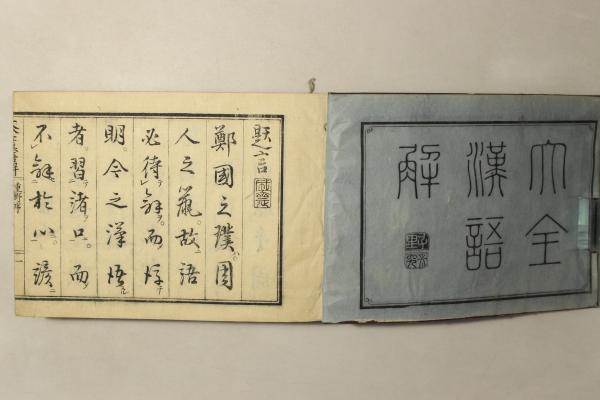 大全
漢語
解
題言
鄭國之璞。周
人之鼠。故語
必待解而後
明。今之漢語
者。習諸口。而
不解於心。